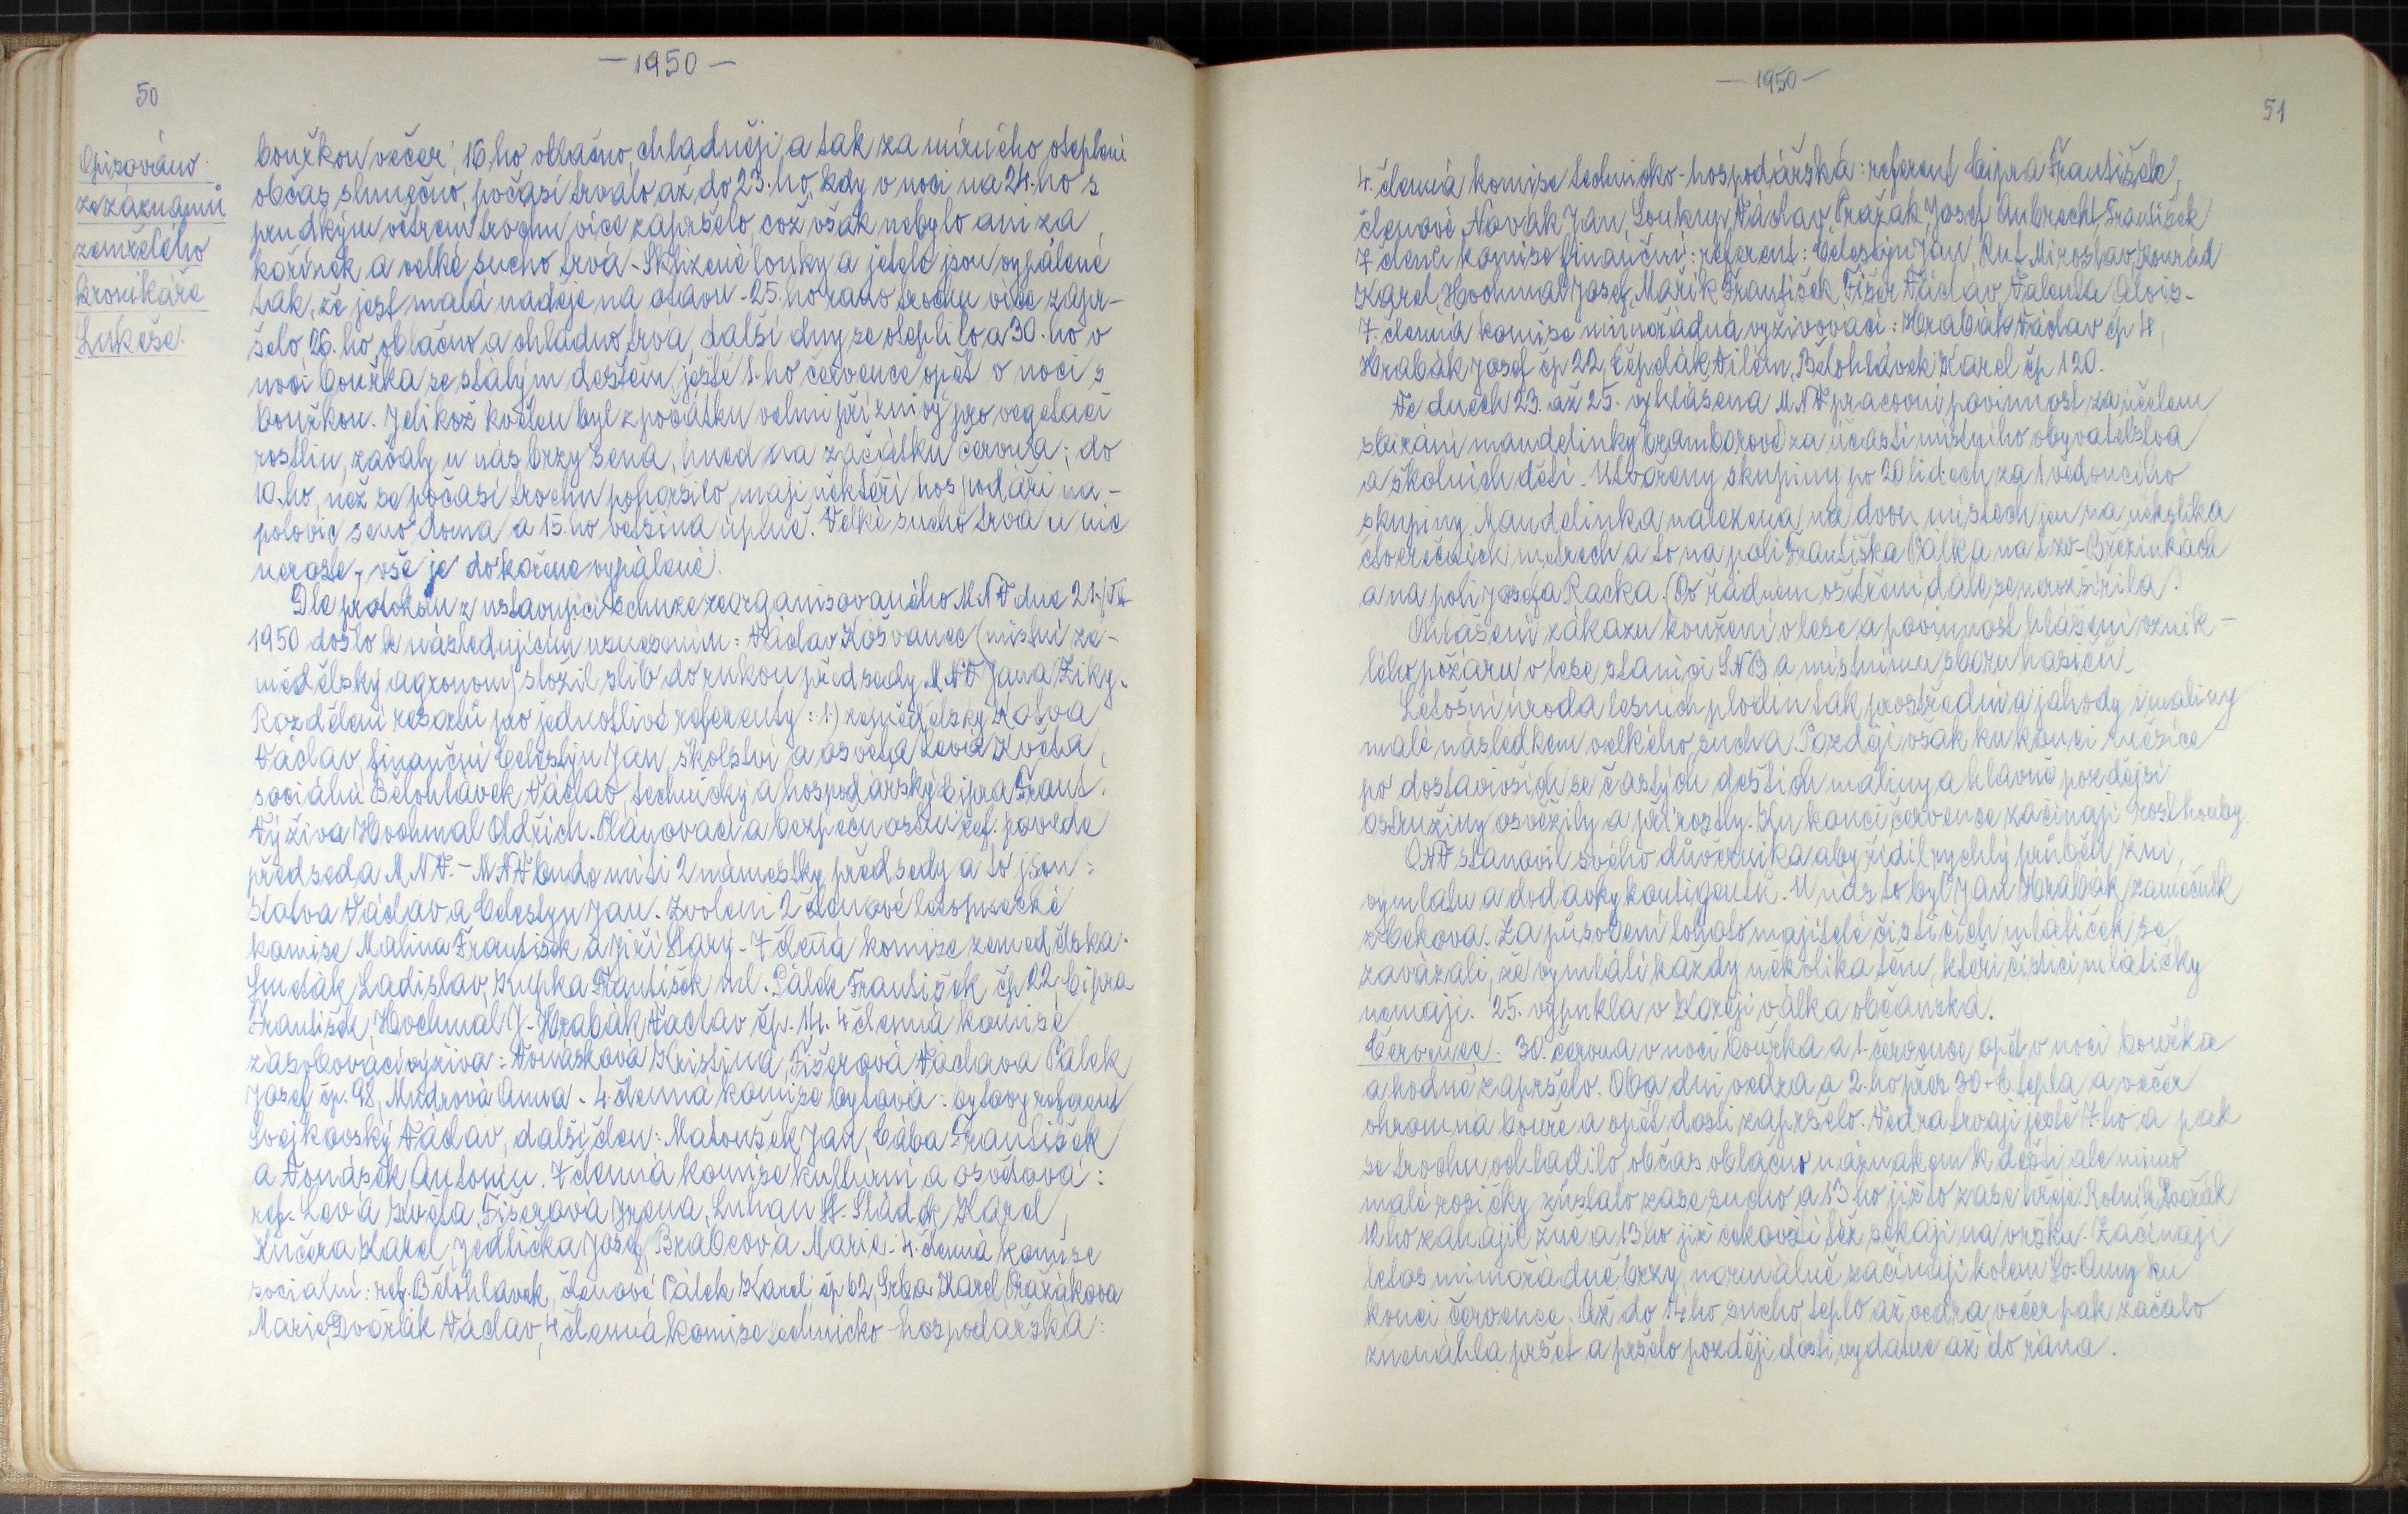 — 1950 —
50
Opisováno
ze záznamů
zemřelého
kronikáře
Lukeše.
bouřkou večer, 16.ho oblačno, chladněji a tak za mírného oteplení
občas slunečno, počasí trvalo až do 23.ho, kdy v noci na 24.ho s
prudkým větrem trochu více zapršelo, což však nebylo ani za
kořínek a velké sucho trvá - Sklizené louky a jetele jsou vypálené
tak, že jest malá naděje na otavu - 25.ho ráno trochu více zapr-
šelo, 26.ho oblačno a chladno trvá, další dny se oteplilo a 30.ho v
noci bouřka se stálým deštěm, ještě 1.ho července opět v noci s
bouřkou. Jelikož květen byl z počátku velmi příznivý pro vegetaci
rostlin, začaly u nás brzy sena, hned na začátku června; do
10.ho, než se počasí trochu pohoršilo, mají někteří hospodáři na-
polovic seno doma a 15.ho většina úplně. Velké sucho trvá a nic
neroste, vše je do kořene vypálené.
Dle protokolu z ustavující schůze reorganisovaného M.N.V dne 21./VI.
1950 došlo k následujícím usnesením: Václav Košvanec (místní ze-
mědělský agronom) složil slib do rukou předsedy M.N.V Jana Ziky.
Rozdělení resortů pro jednotlivé referenty: 1) zemědělský Kotva
Václav, finanční Celestýn Jan, školství a osvěta Levá Květa,
sociální Bělohlávek Václav, technický a hospodářský Cipra Frant.
Výživa Hochmal Oldřich. Plánovací a bezpečnostní ref. povede
předseda M.N.V. - M.N.V bude míti 2 náměstky předsedy a to jsou:
Kotva Václav a Celestýn Jan. Zvoleni 2 členové letopisecké
komise Malina František a Jiří Starý - 7 členná komise zemědělská.
Smeták Ladislav, Kupka František ml. Pálek František čp 22, Cipra
František, Hochmal J. Hrabák Václav čp. 14. 4 členná komise
zásobovací výživa: Vonásková Kristina, Fišerová Václava Pálek
Josef čp. 98, Mudrová Anna - 4 členná komise bytová: bytový referent
Svejkovský Václav, další člen: Matoušek Jan, Cába František
a Vonásek Antonín. 7 členná komise kulturní a osvětová:
ref. Levá Květa, Fišerová Irena, Luhan St. Sládek Karel,
Kučera Karel, Jedlička Josef, Brabcová Marie - 4. členná komise
sociální: ref. Bělohlavek, členové Pálek Karel čp 62, Srba Karel, Pražáková
Marie, Dvořák Václav, 4 členná komise technicko-hospodářská:
— 1950 —
51
4. členná komise technicko-hospodářská: referent Cipra František,
členové Novák Jan, Soukup Václav, Pražák Josef, Aubrecht František
7 členů komise finanční: referent: Celestýn Jan, Rut Miroslav, Konrád
Karel, Hochmal Josef, Mařík František, Fišer Václav, Valenta Alois -
7. členná komise mimořádná vyživovací: Hrabák Václav čp 14,
Hrabák Josef čp 22, Čepelák Vilém, Bělohlávek Karel čp 120.
Ve dnech 23. až 25. vyhlášena M.N.V pracovní povinnost za účelem
sbírání mandelinky bramborové za účasti místního obyvatelstva
a školních dětí. Utvořeny skupiny po 20 lidech za 1 vedoucího
skupiny. Mandelinka nalezena na dvou místech jen na několika
čtverečních metrech a to na poli Františka Pálka na tzv - Březinkách
a na poli Josefa Racka. (Po řádném ošetření dále se nerozšířila.)
Ohlášení zákazu kouření v lese a povinnost hlášení vznik-
lého požáru v lese stanici SNB a místnímu sboru hasičů -
Letošní úroda lesních plodin tak prostřední a jahody i maliny
malé následkem velkého sucha. Později však ku konci měsíce
po dostavivších se častých deštích maliny a hlavně pozdější
ostružiny osvěžily a přirostly. Ku konci července začínají růst houby.
ONV stanovil svého důvěrníka aby řídil rychlý průběh žní,
výmlatu a dodávky kontigentů. U nás to byl Jan Hrabák, zámečník
z Čekova. Za působení tohoto majitelé čistících mlátiček se
zavázali, že vymlátí každý několika těm, kteří čistící mlátičky
nemají. 25. vypukla v Koreji válka občanská.
Červenec - 30. června v noci bouřka a 1. července opět v noci bouřka
a hodně zapršelo. Oba dni vedra a 2.ho přes 30°C tepla a večer
ohromná bouře a opět dosti zapršelo. Vedra trvají ještě 7.ho a pak
se trochu ochladilo, občas oblačno náznakem k dešti ale mimo
malé rosičky zůstalo zase sucho a 13.ho již to zase hřeje. Rolník Dvořák
12.ho zahájil žně a 13.ho již čekovští též sekají na vršku. Začínají
letos mimořádně brzy, normálně začínají kolem Sv. Anny ku
konci července. Až do 14.ho sucho, teplo až vedra, večer pak začalo
znenáhla pršet a pršelo později dosti vydatně až do rána.